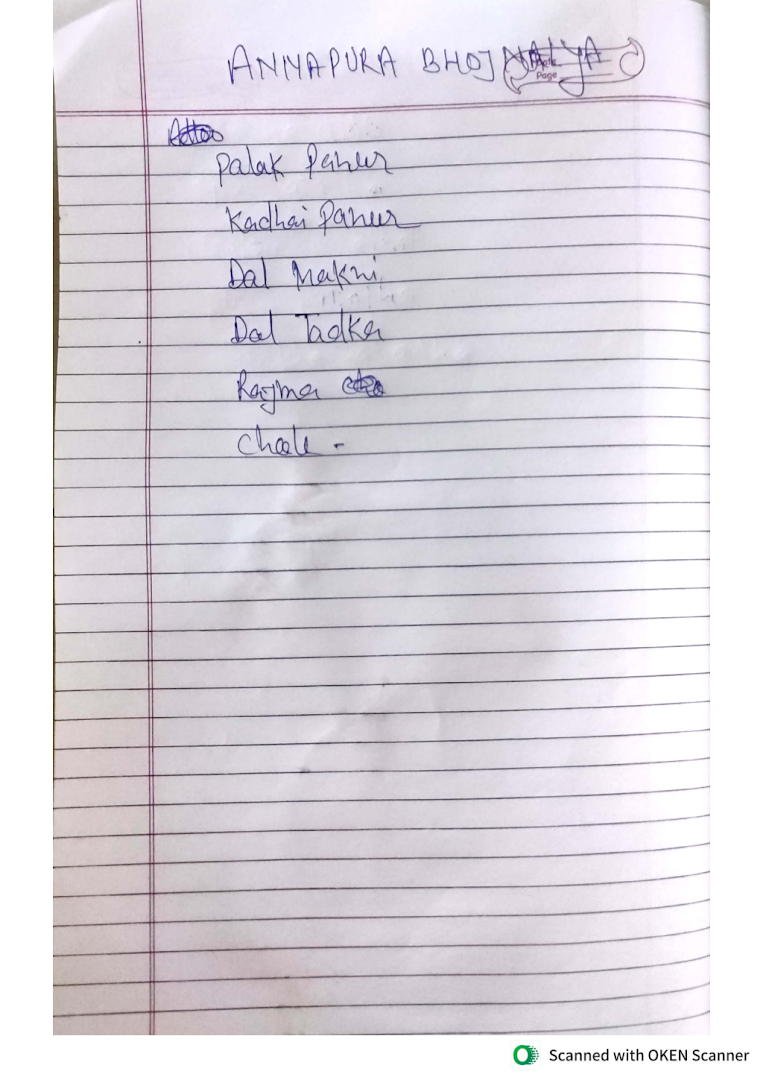 ANNAPURA BHOJNALYA
Page
Palak Paneer
Kadhai Paneer
Dal Makni
Dal Tadka
Rajma
Chole -
Scanned with OKEN Scanner